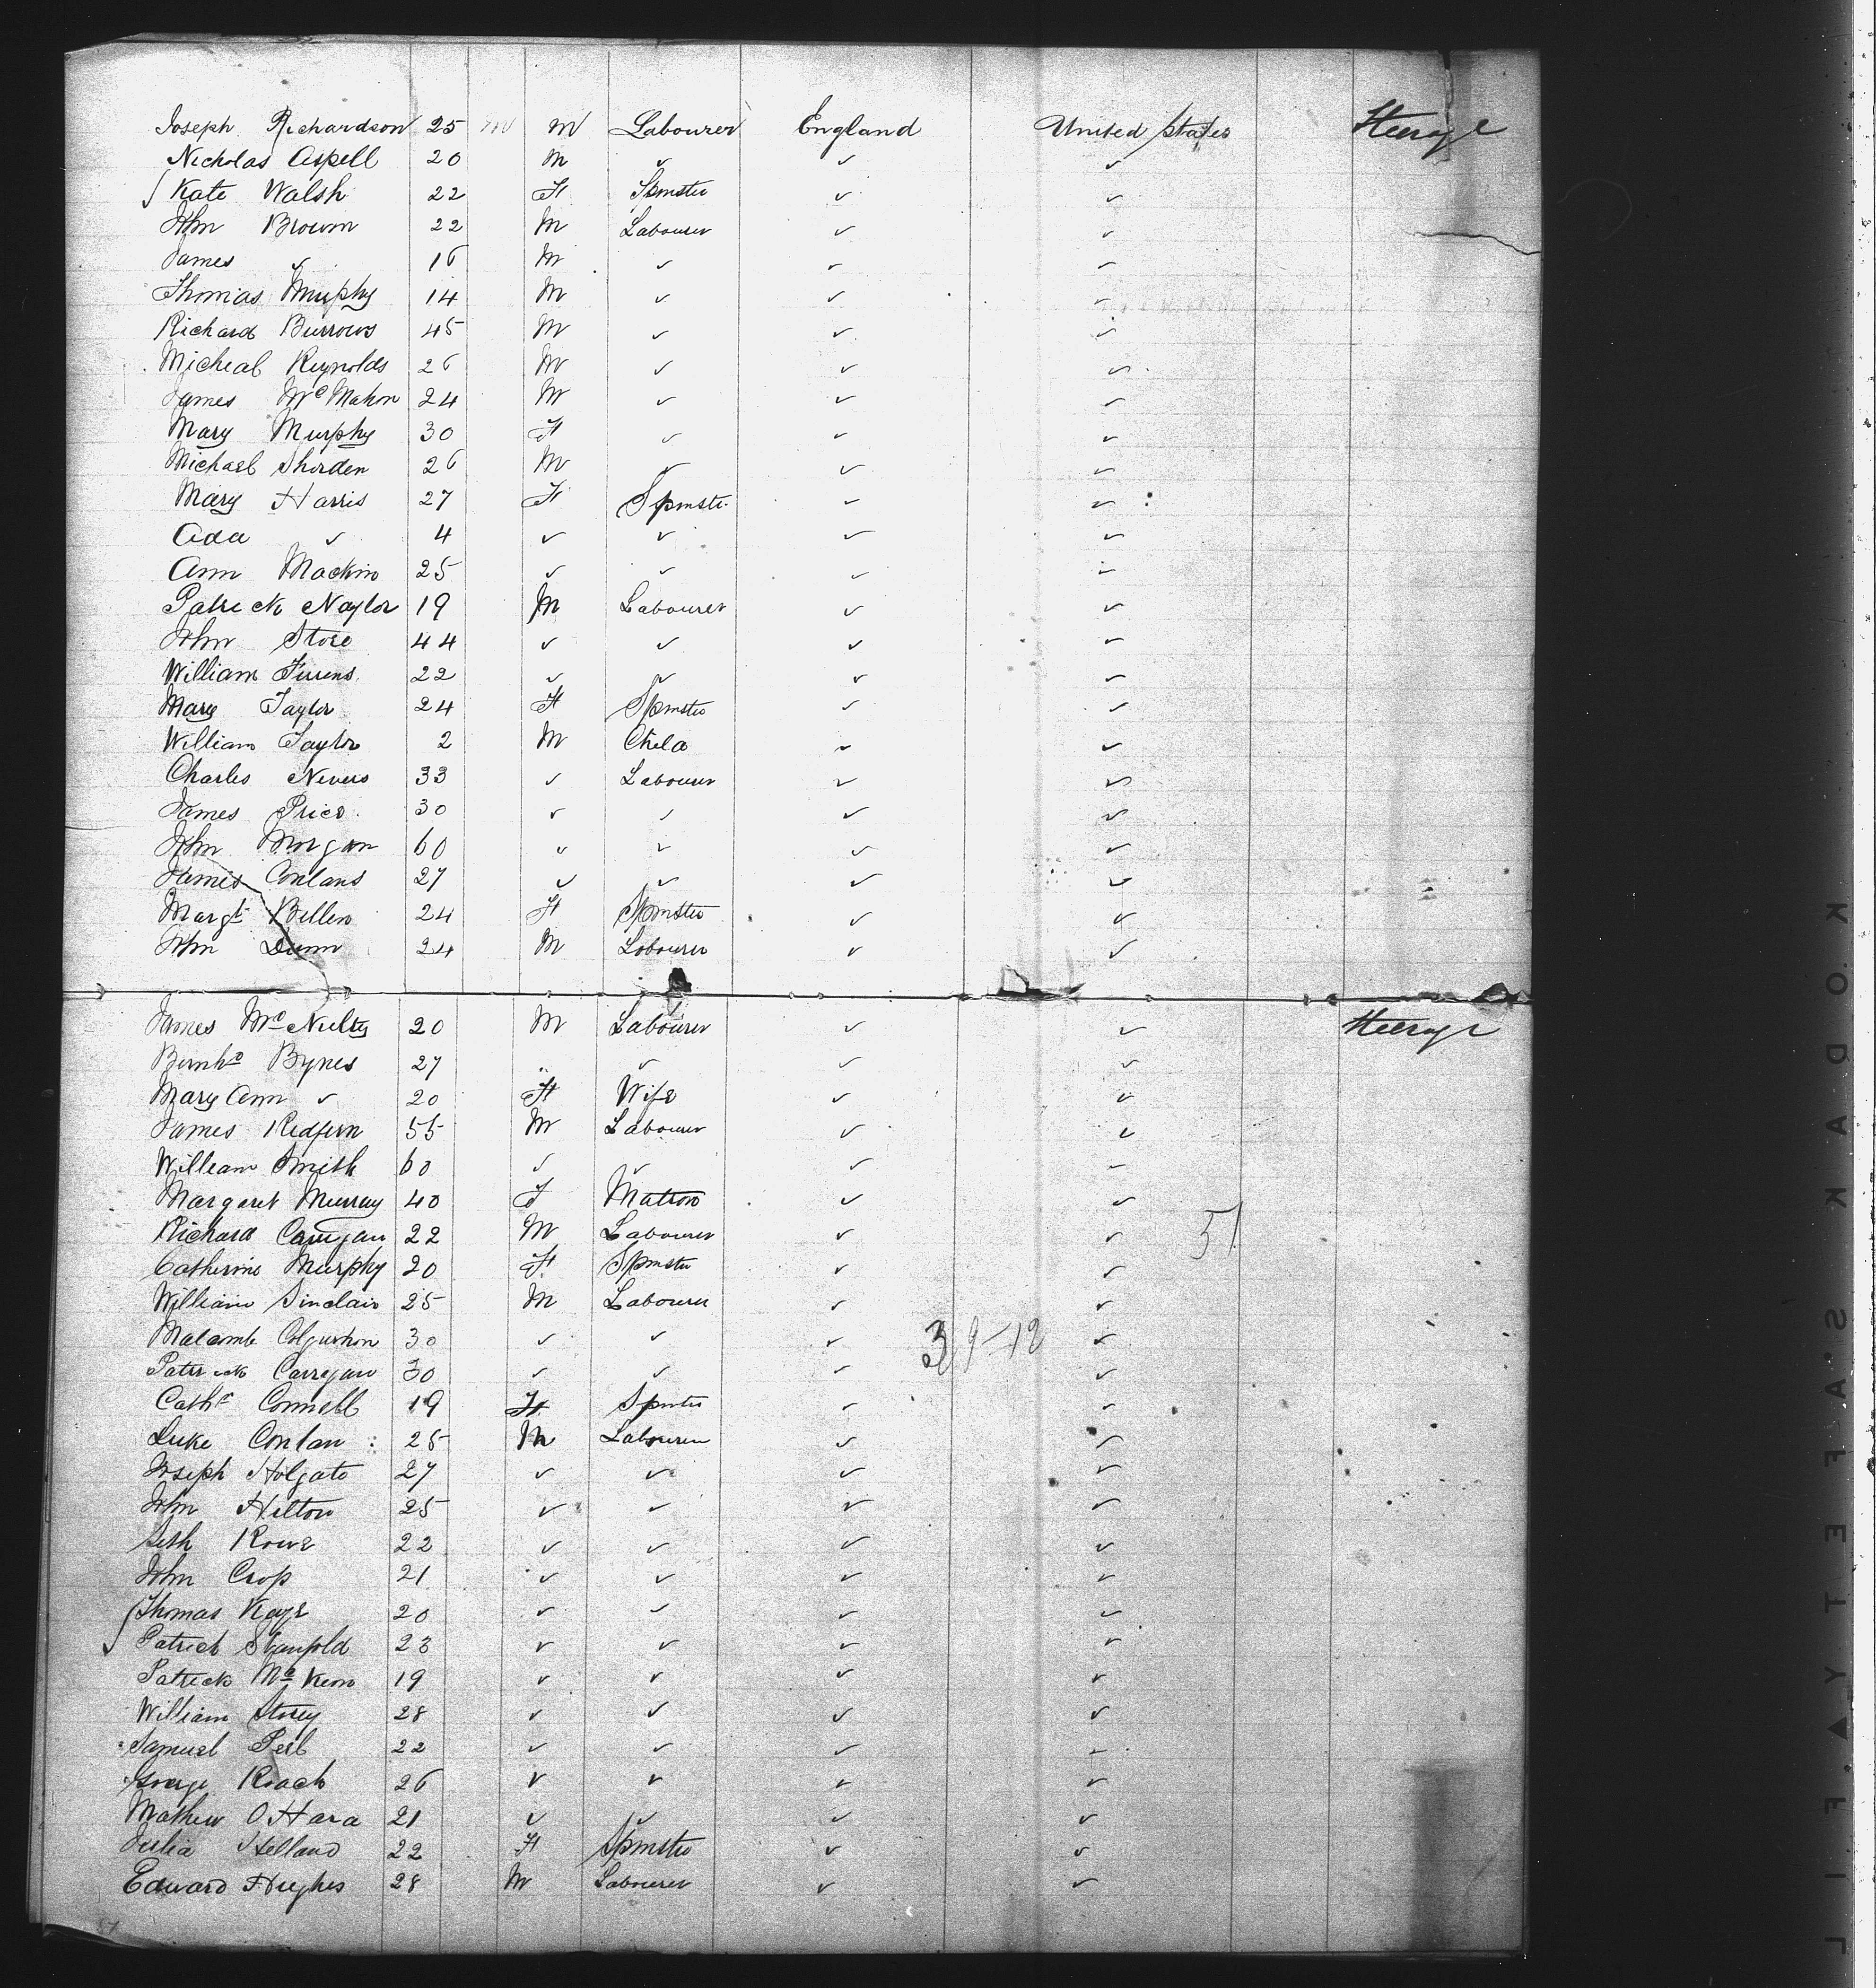 Joseph Richardson 25 M M Labourer England United States Steerage
Nicholas Aspell 20 M ✓ ✓ ✓
Kate Walsh 22 F Spinster ✓ ✓
John Brown 22 M Labourer ✓ ✓
James ✓ 16 M ✓ ✓ ✓
Thomas Murphy 14 M ✓ ✓ ✓
Richard Burrows 45 M ✓ ✓ ✓
Micheal Reynolds 26 M ✓ ✓ ✓
James McMahon 24 M ✓ ✓ ✓
Mary Murphy 30 F ✓ ✓ ✓
Michael Sherden 26 M ✓ ✓ ✓
Mary Harris 27 F Spinster ✓ ✓
Ada ✓ 4 ✓ ✓ ✓ ✓
Ann Mackin 25 ✓ ✓ ✓ ✓
Patrick Naylor 19 M Labourer ✓ ✓
John Store 44 ✓ ✓ ✓ ✓
William 22 ✓ ✓ ✓ ✓
Mary Taylor 24 F Spinster ✓ ✓
William Taylor 2 M Child ✓ ✓
Charles Nevers 33 ✓ Labourer ✓ ✓
James Price 30 ✓ ✓ ✓ ✓
John Morgan 60 ✓ ✓ ✓ ✓
James Conlans 27 ✓ ✓ ✓ ✓
Margt Bellen 24 F Spinster ✓ ✓
John Dunn 24 M Labourer ✓ ✓
James McNulty 20 M Labourer ✓ ✓ Steerage
Bernhd Bynes 27 " ✓ ✓ ✓
Mary Ann ✓ 20 F Wife ✓ ✓
James Redfern 55 M Labourer ✓ ✓
William Smith 60 ✓ ✓ ✓ ✓
Margaret Murray 40 F Matron ✓ ✓
Richard Carrigan 22 M Labourer ✓ ✓ 51
Catherine Murphy 20 F Spinster ✓ ✓
William Sinclair 25 M Labourer ✓ ✓
Malcomb 30 ✓ ✓ ✓ 39-12 ✓
Patrick Carrigan 30 ✓ ✓ ✓ ✓
Cathe Connell 19 F Spinster ✓ ✓
Luke Conlan 25 M Labourer ✓ ✓
Joseph Holgate 27 ✓ ✓ ✓ ✓
John Hilton 25 ✓ ✓ ✓ ✓
Seth Rowe 22 ✓ ✓ ✓ ✓
John Crop 21 ✓ ✓ ✓ ✓
Thomas Kaye 20 ✓ ✓ ✓ ✓
Patrick 23 ✓ ✓ ✓ ✓
Patrick McKeon 19 ✓ ✓ ✓ ✓
William Storey 28 ✓ ✓ ✓ ✓
Samuel Peel 22 ✓ ✓ ✓ ✓
George Roach 26 ✓ ✓ ✓ ✓
Mathew OHara 21 ✓ ✓ ✓ ✓
Julia Helland 22 F Spinster ✓ ✓
Edward Hughes 28 M Labourer ✓ ✓
KODAK SAFETY FIL